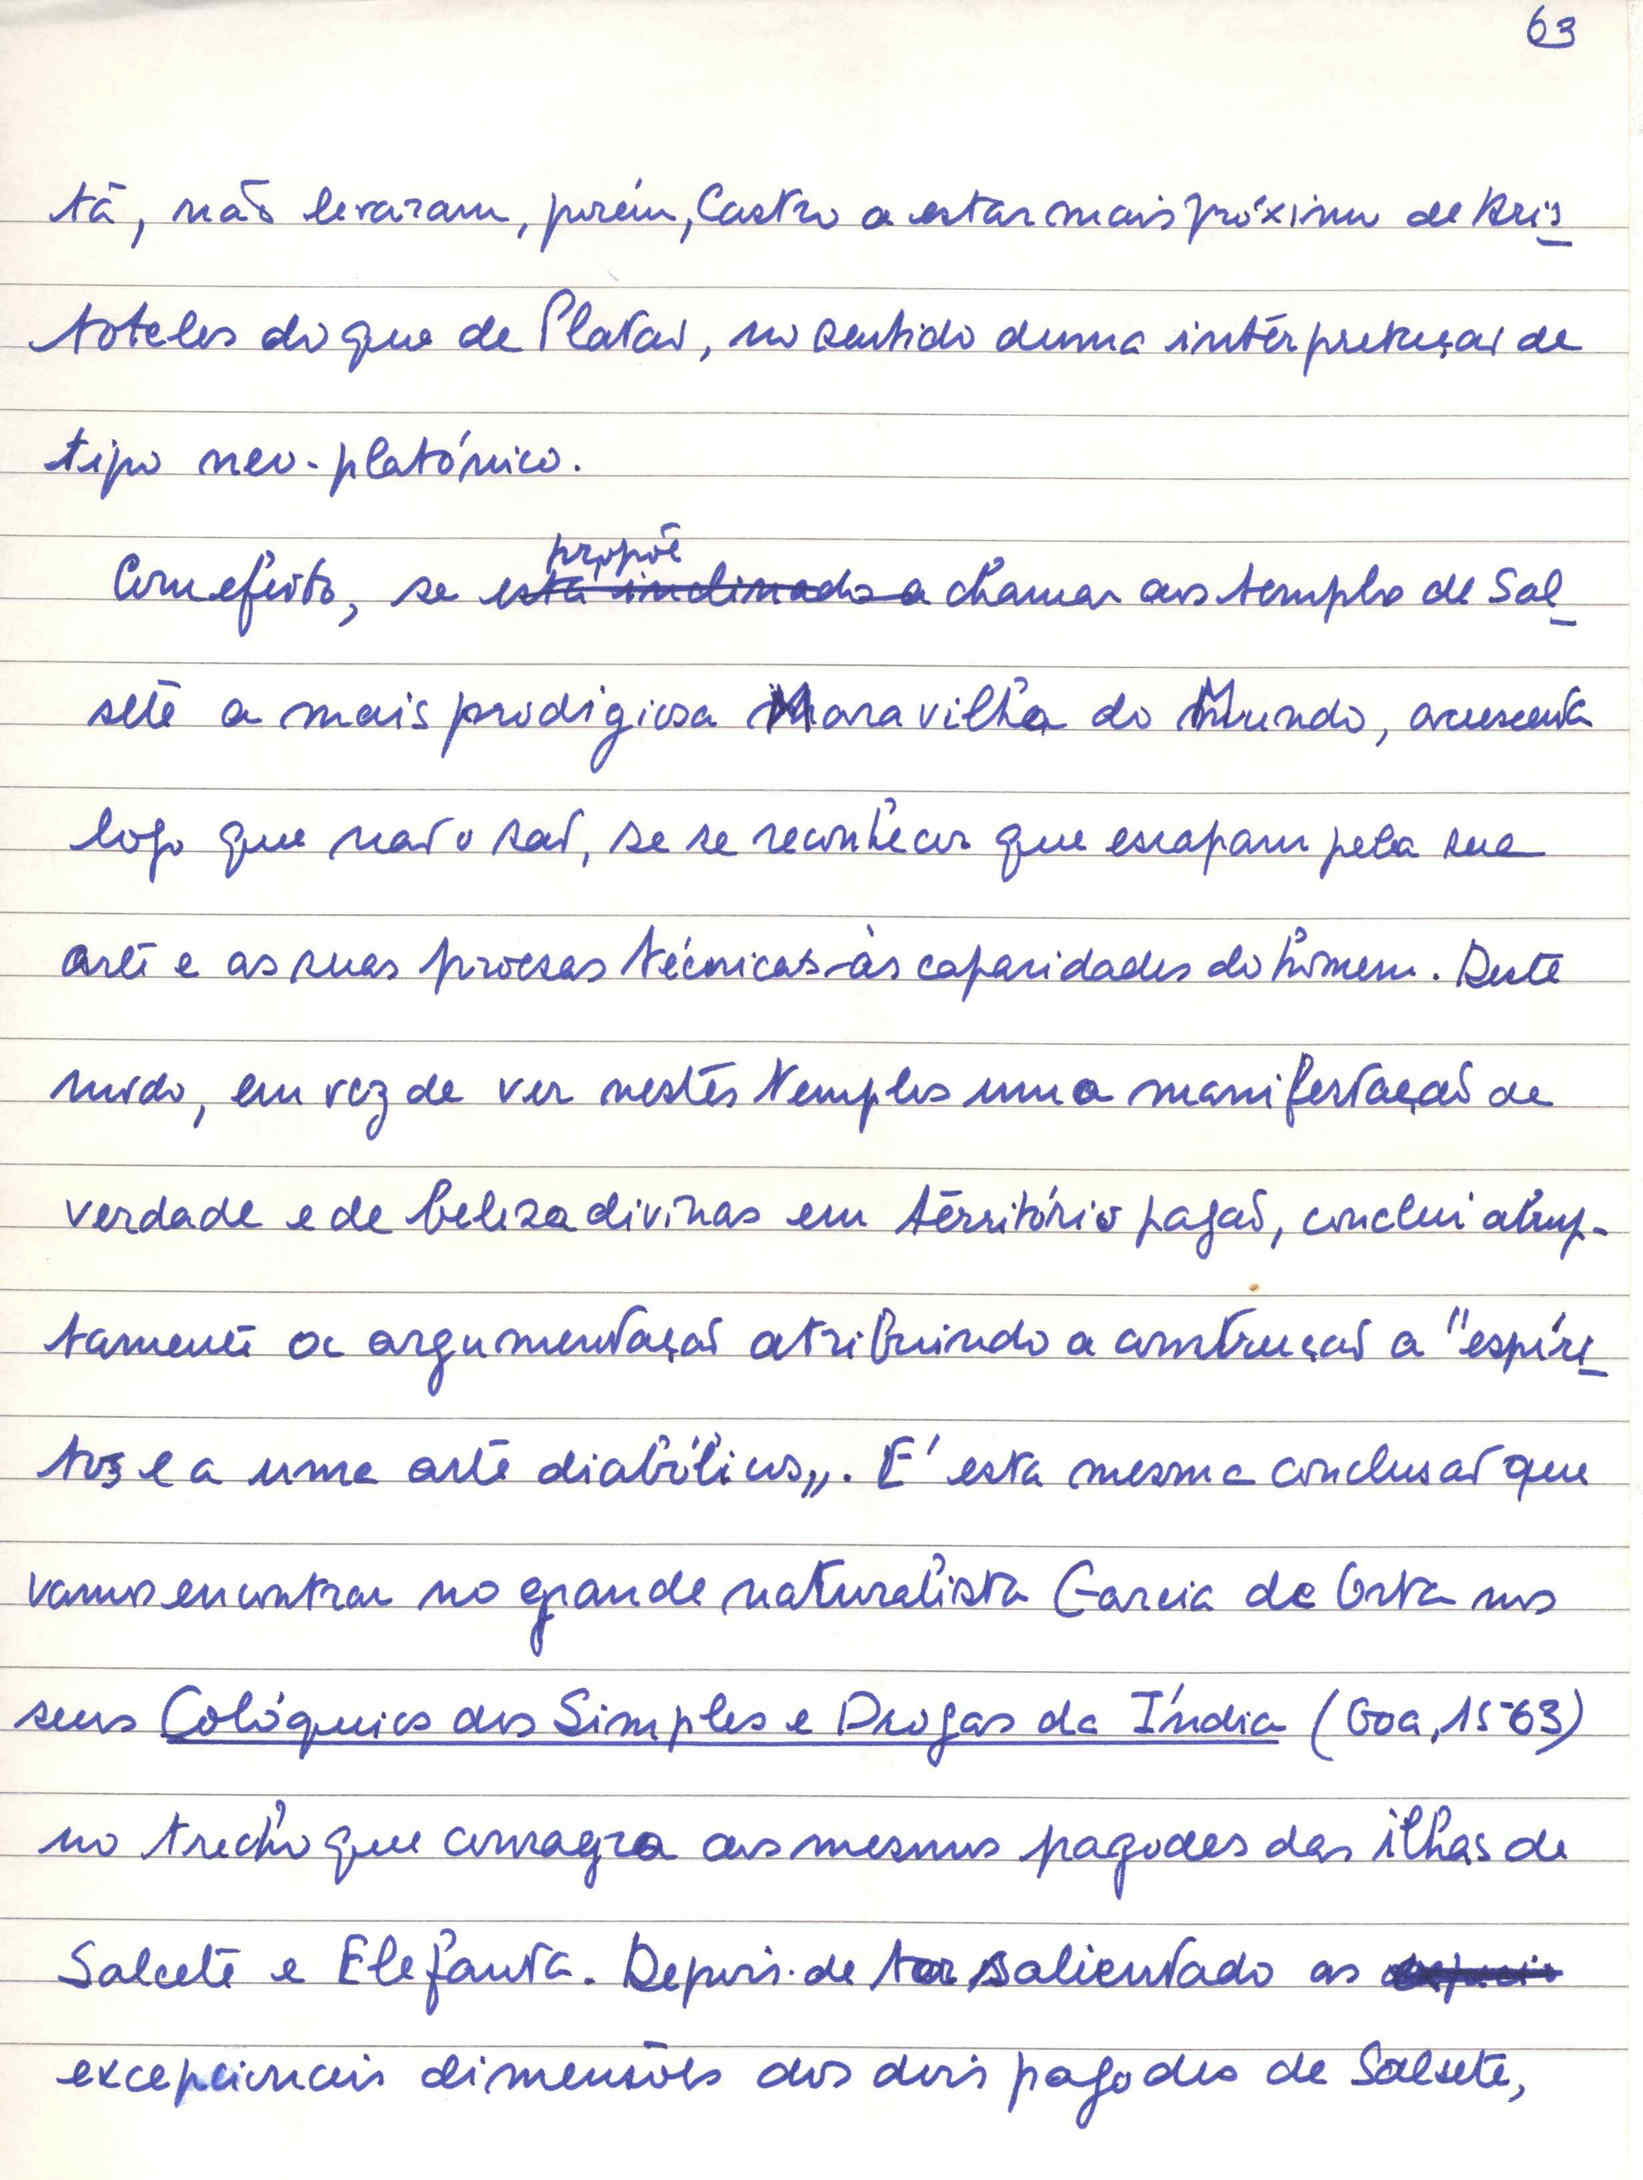 63
tã, não levaram, porém, Castro a estar mais próximo de Aris
toteles do que de Platão, no sentido duma interpretação de
tipo neo-platónico.
propõe
Com efeito, se está inclinado a chamar aos templo de Sal
sete a mais prodigiosa Maravilha do Mundo, acrescenta
logo que não o são, se se reconhecer que escapam pela sua
arte e as suas proezas técnicas às capacidades do homem. Deste
modo, em vez de ver nestes templos uma manifestação de
verdade e de beleza divinas em território pagão, conclui abrup-
tamente a argumentação atribuindo a construção a "espíri
tos e a uma arte diabólicos„. É esta mesma conclusão que
vamos encontrar no grande naturalista Garcia de Orta nos
seus Colóquios dos Simples e Drogas da Índia (Goa, 1563)
no trecho que consagra aos mesmos pagodes das ilhas de
Salcete e Elefanta. Depois de ter salientado as
excepcionais dimensões dos dois pagodes de Salsete,